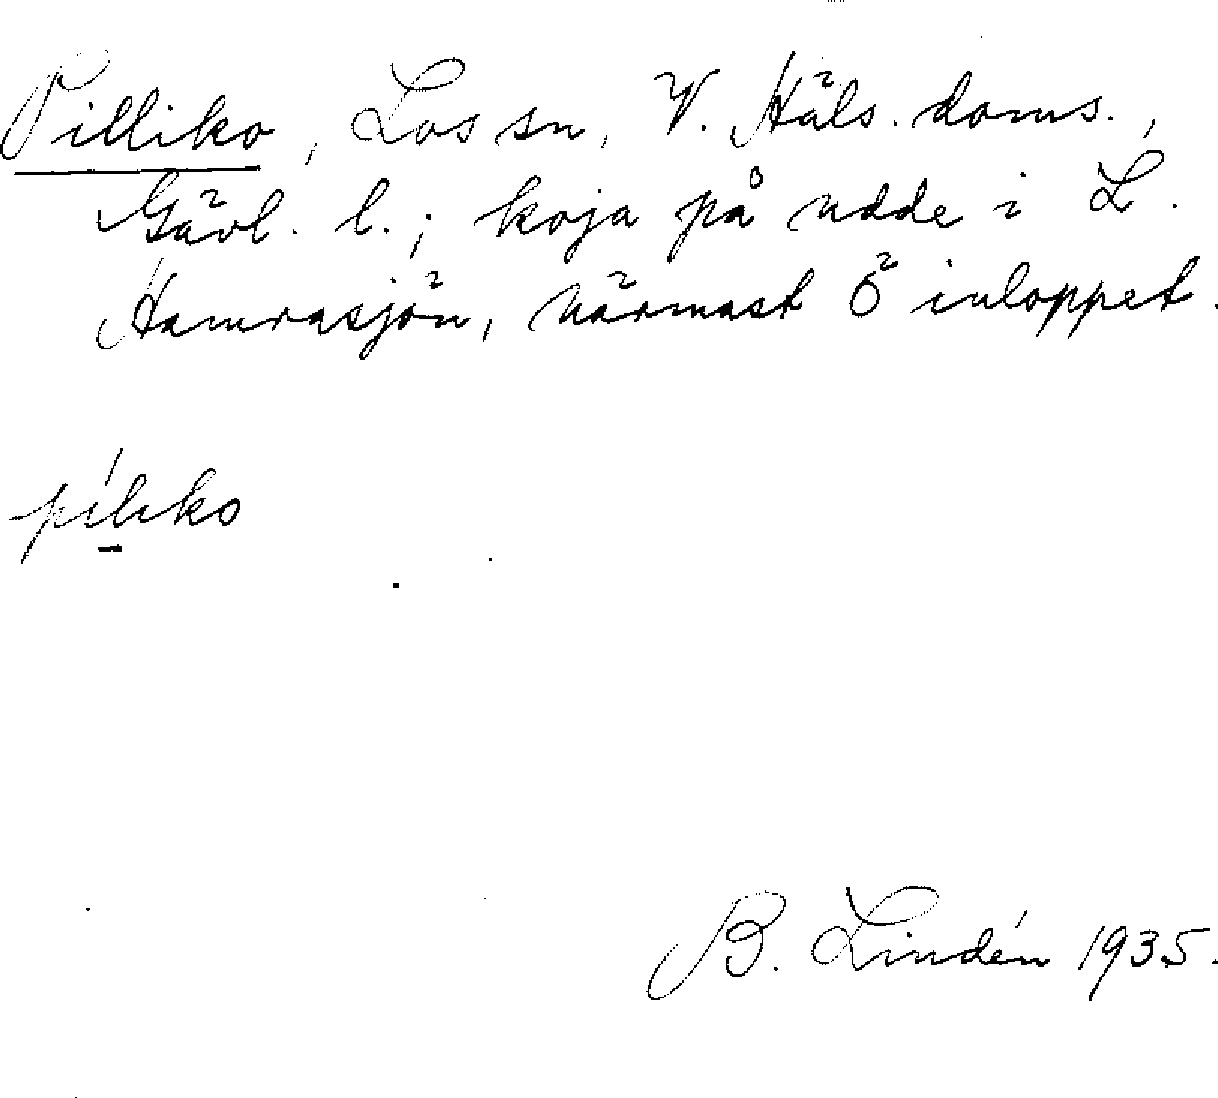 Pilliko, Los sn, V. Häls. doms.,
Gävl. l.; koja på udde i L.
Hamrasjön, närmast Ö inloppet.
píliko
B. Lindén 1935.